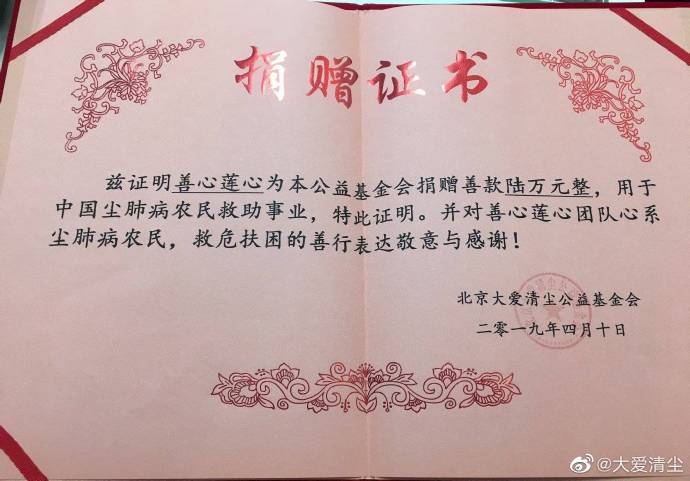 捐赠证书
兹证明善心莲心为本公益基金会捐赠善款陆万元整，用于
中国尘肺病农民救助事业，特此证明。并对善心莲心团队心系
尘肺病农民，救危扶困的善行表达敬意与感谢！
北京大爱清尘公益基金会
二零一九年四月十日
@大爱清尘